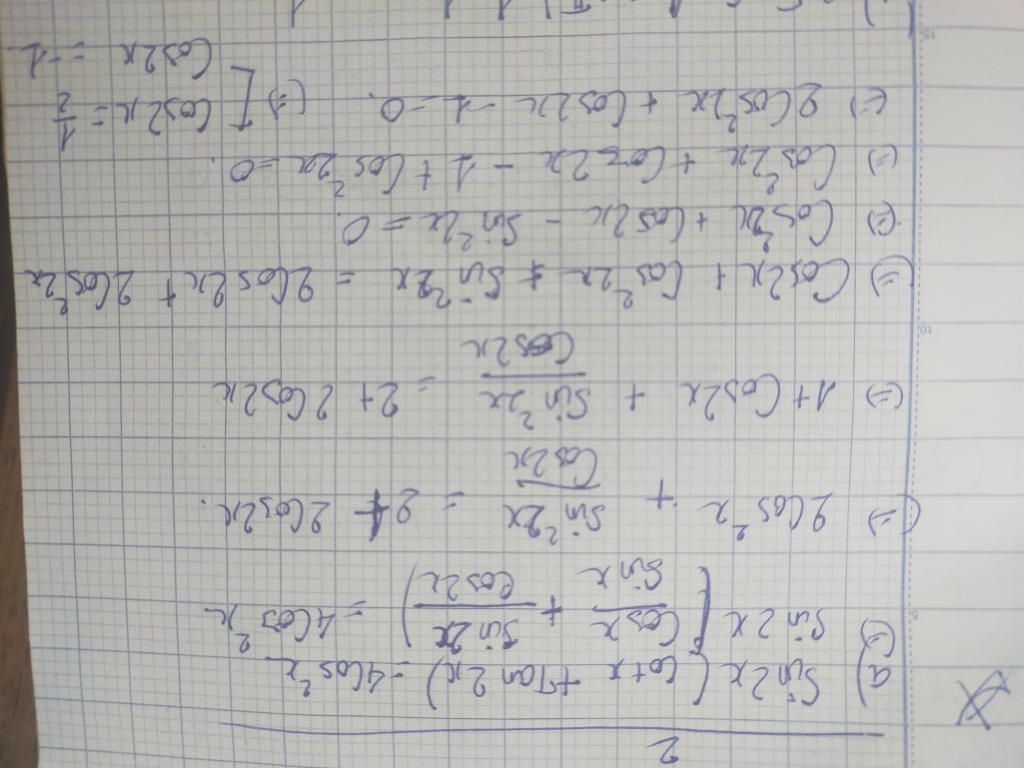 2
a) Sin2x (Cotx + Tan2x) = 4Cos²x
(=) Sin2x (Cosx/Sinx + Sin2x/Cos2x) = 4Cos²x
(=) 2Cos²x + Sin²2x/Cos2x = 2 + 2Cos2x.
(=) 1 + Cos2x + Sin²2x/Cos2x = 2 + 2Cos2x
(=) Cos2x + Cos²2x + Sin²2x = 2Cos2x + 2Cos²2x
(=) Cos²2x + Cos2x - Sin²2x = 0.
(=) Cos²2x + Cos2x - 1 + Cos²2x = 0.
(=) 2Cos²2x + Cos2x - 1 = 0. (=) [ Cos2x = 1/2
Cos2x = -1.
5
10
15